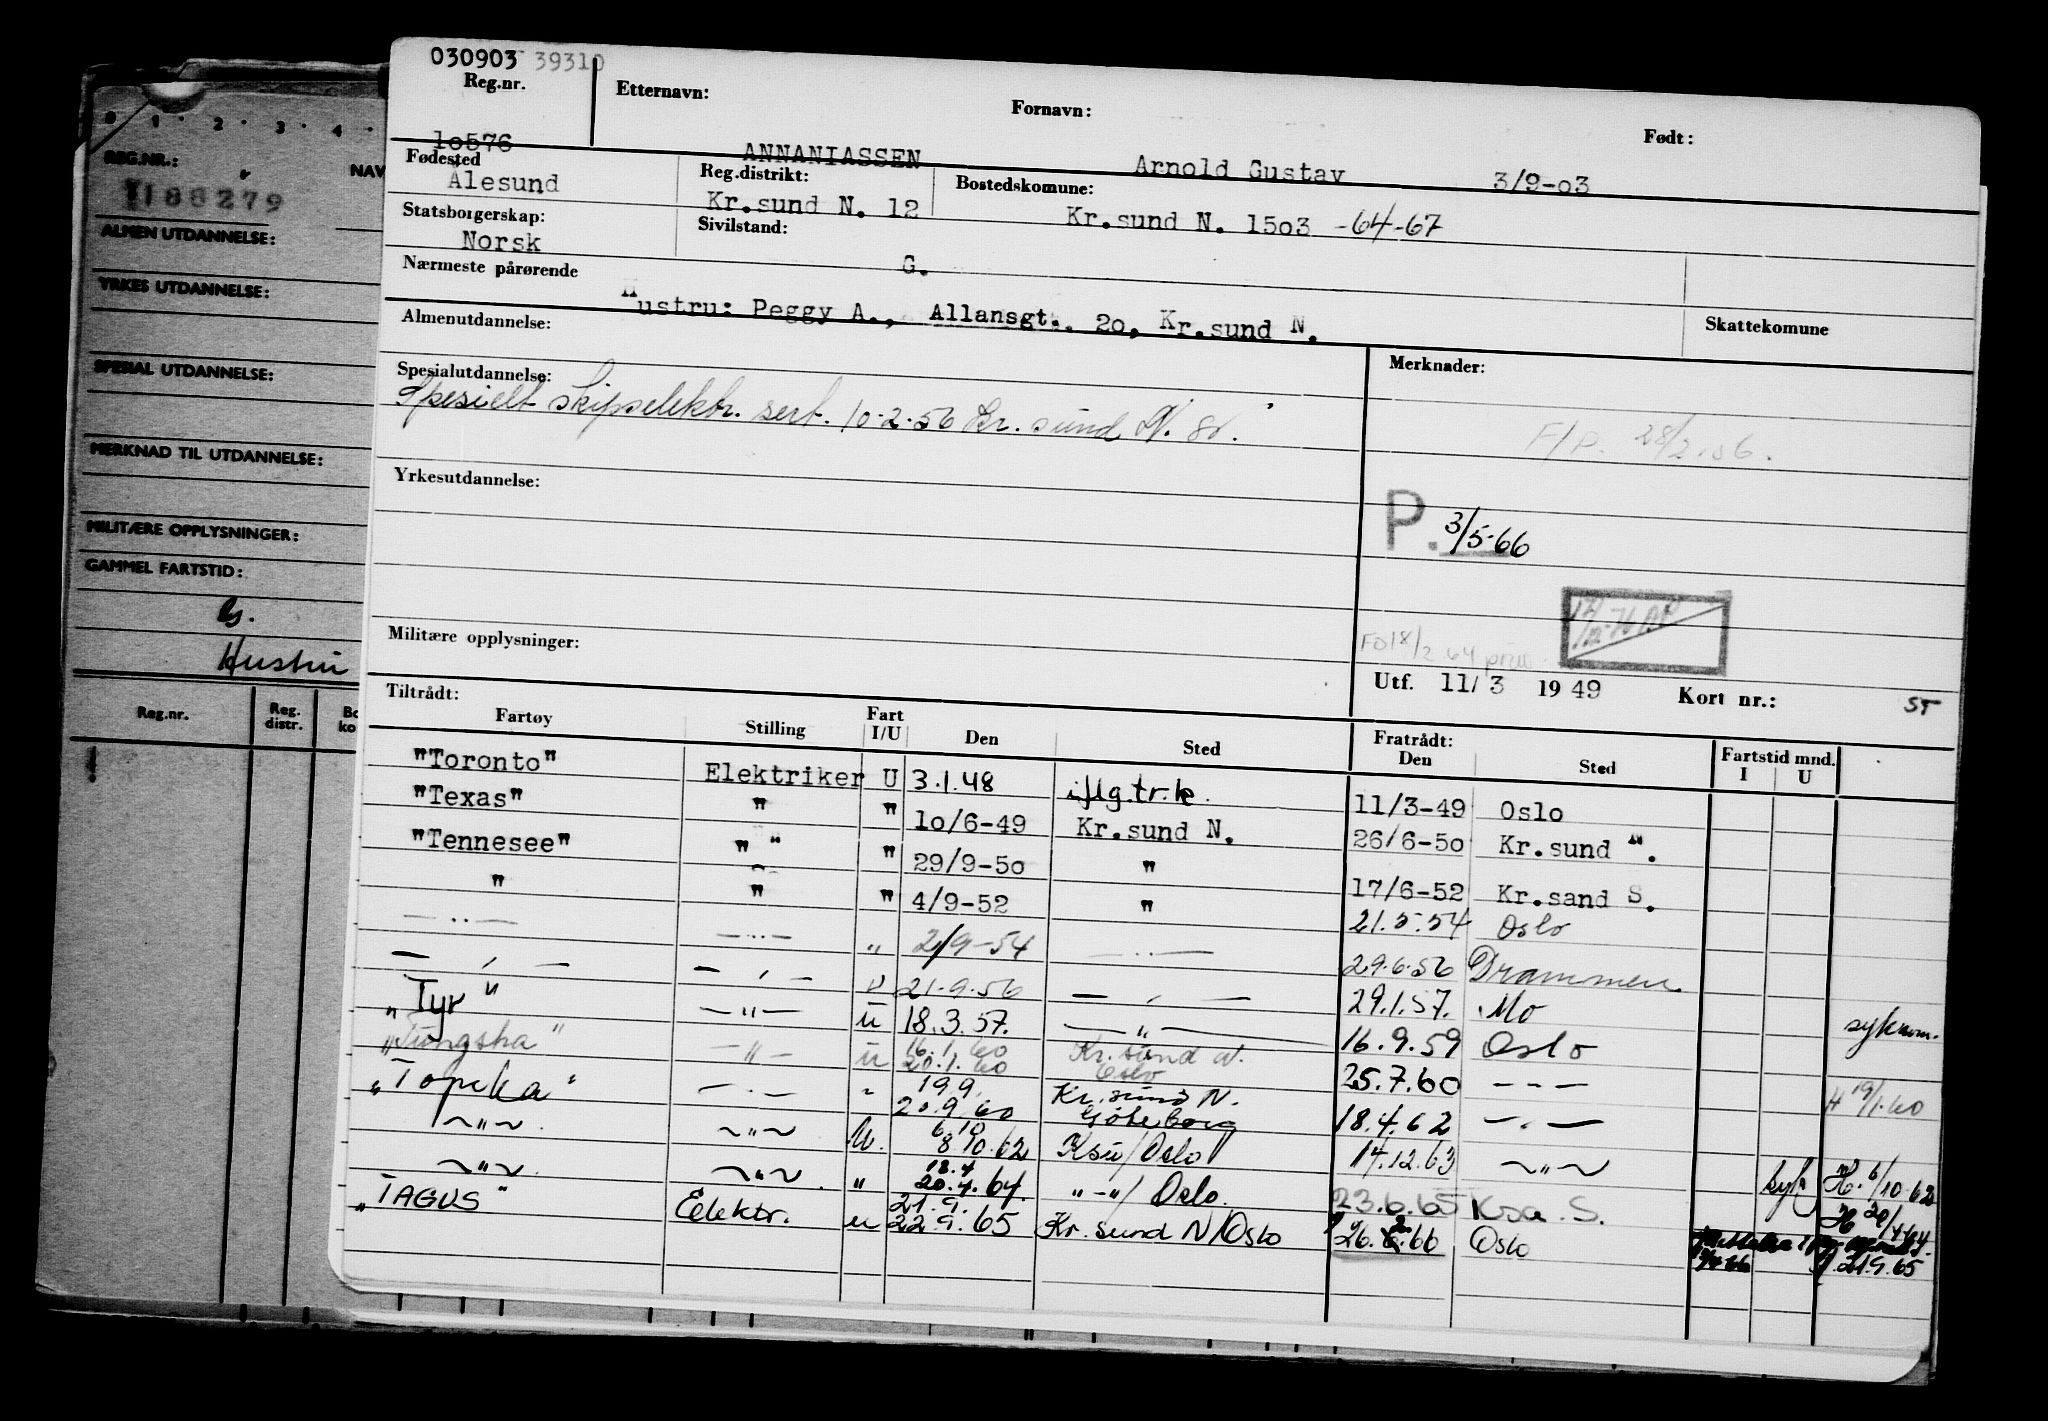 030903 39310
Reg.nr. Etternavn: Fornavn: Født:
10576 ANNANIASSEN Arnold Gustav 3/9-03
Fødested Reg.distrikt: Bostedskomune:
Ålesund Kr.sund N. 12 Kr.sund N. 1503 -64-67
Statsborgerskap: Sivilstand:
Norsk G.
Nærmeste pårørende
Hustru: Peggy A., Allansgt. 20, Kr.sund N.
Almenutdannelse: Skattekomune
Spesialutdannelse: Merknader:
Spesielt skipselektr. sert. 10-2-56 Kr. sund N.
F/P. 28/2.56.
Yrkesutdannelse:
P. 3/5-66
Militære opplysninger:
FO 18/2 64
Utf. 11/3 1949 Kort nr.: ST
Tiltrådt: Fratrådt: Fartstid mnd.
Fartøy Stilling Fart I/U Den Sted Den Sted I U
"Toronto" Elektriker U 3.1.48 iflg.tr.k. 11/3-49 Oslo
"Texas" " " 10/6-49 Kr.sund N. 26/6-50 Kr.sund N.
"Tennesee" " " 29/9-50 " 17/6-52 Kr.sand S.
" " " 4/9-52 " 21.5.54 Oslo
— .. — — .. — " 2/9-54 — .. — 29.6.56 Drammen
— , — — , — " 21.9.56 — , — 29.1.57. Mo
"Tyr" — " — u 18.3.57. — " — 16.9.59 Oslo sykdom.
"Tungsha" — " — u 16.1.60 20.1.60 Kr. sund N. Oslo 25.7.60 — — — H 19/1.60
"Topeka" — . — " 19.9. 20.9.60 Kr. sund N. Göteborg 18.4.62 — . —
~ " ~ ~ " ~ U. 6.10 8.10.62 Ksu/Oslo 14.12.63 ~ " ~ syk H. 6/10.62
~ " ~ ~ " ~ " 18.4 20.4.64. " - "/ Oslo. 23.6.65 Ksa. S. H 20/4.64
"TAGUS" Elektr. u 21.9. 22.9.65 Kr. sund N/Oslo 26.2.66 Oslo 21.9.65
0 1 2 3 4
REG.NR.: NAV
188279
ALMEN UTDANNELSE:
YRKES UTDANNELSE:
SPESIAL UTDANNELSE:
MERKNAD TIL UTDANNELSE:
MILITÆRE OPPLYSNINGER:
GAMMEL FARTSTID:
G.
Hustru
Reg.nr. Reg. distr. Bo ko